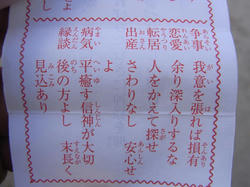 争事 我意を張れば損有
恋愛 余り深入りするな
転居 人をかえて探せ
出産 さわりなし 安心せ
よ
病気 平癒す信神が大切
縁談 後の方よし 末長く
見込あり